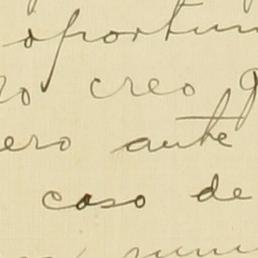 oportun
ro creo q
ero ante
caso de